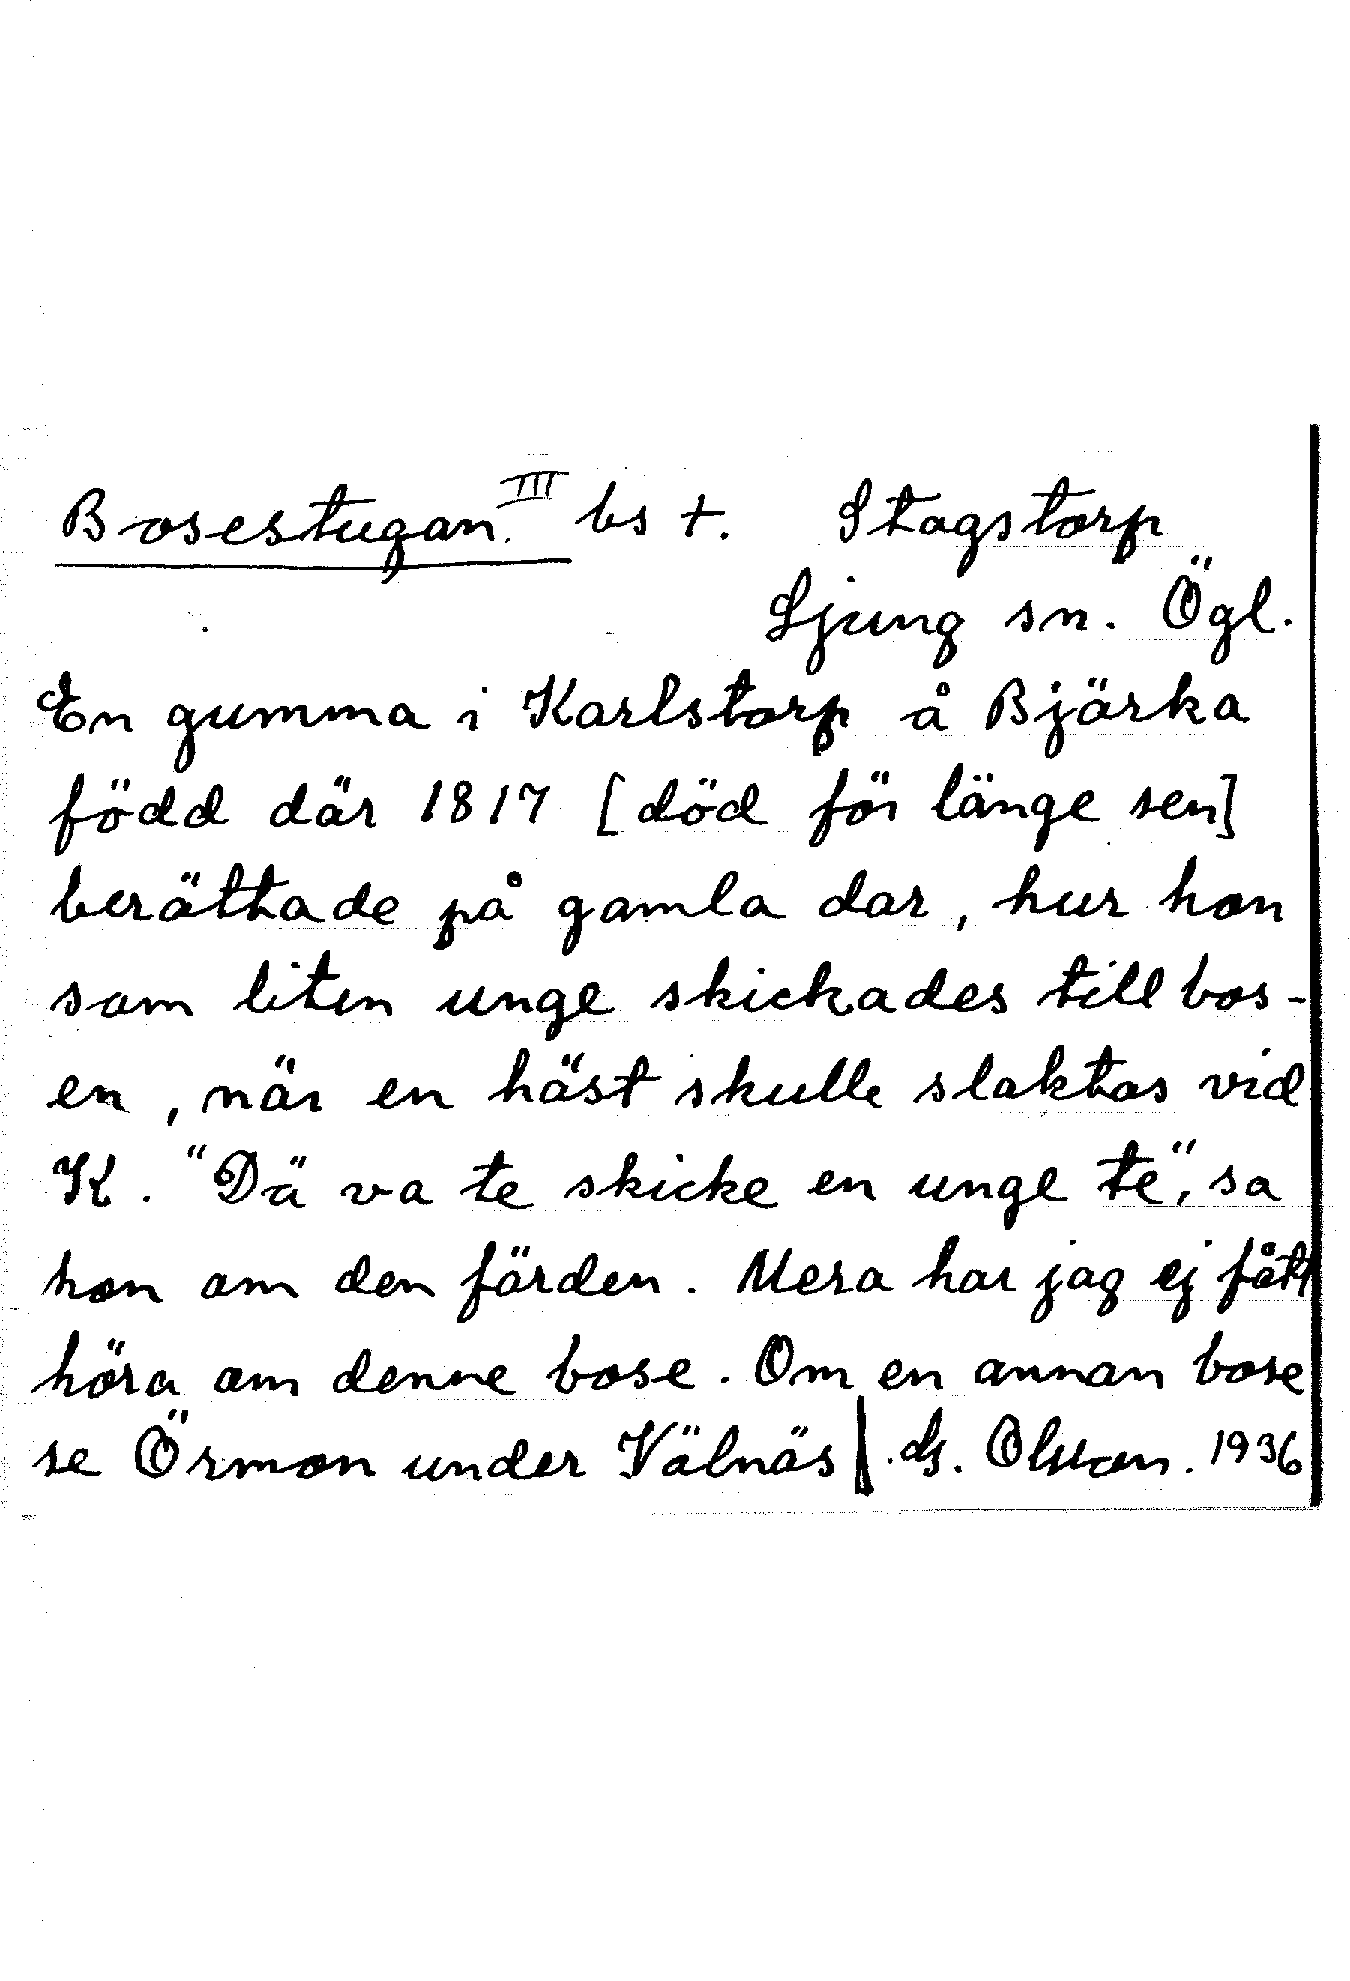 Bosestugan. III bs †. Stagstorp
Ljung sn. Ögl.
En gumma i Karlstorp å Bjärka
född där 1817 [död för länge sen]
berättade på gamla dar, hur hon
som liten unge skickades till bos-
en, när en häst skulle slaktas vid
K. "Dä va te skicke en unge te", sa
hon om den färden. Mera har jag ej fått
höra om denne bose. Om en annan bose
se Örmon under Välnäs | . Olsson. 1936